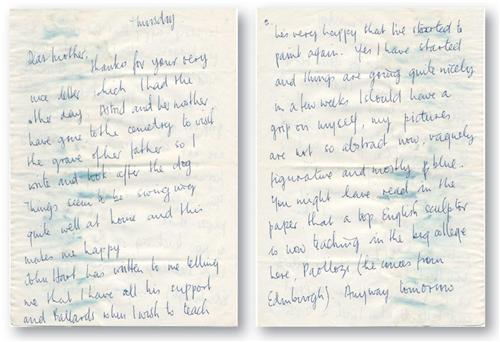 Thursday
Dear Mother,
Thanks for your very
nice letter which I had the
other day. Astrid and her mother
have gone to the cemetry to visit
the grave of her father so I
write and look after the dog
Things seem to be swing
quite well at home and this
makes me happy
John Hart has written to me telling
me that I have all his support
and Ballards when I wish to teach
he's very happy that I've started to
paint again. Yes I have started
and things are going quite nicely
in a few weeks I should have a
grip on myself, my pictures
are not so abstract now, vaguely
figurative and mostly blue.
You might have read in the
paper that a top English sculptor
is now teaching in the big college
here Paollozi (he comes from
Edinburgh). Anyway tomorrow